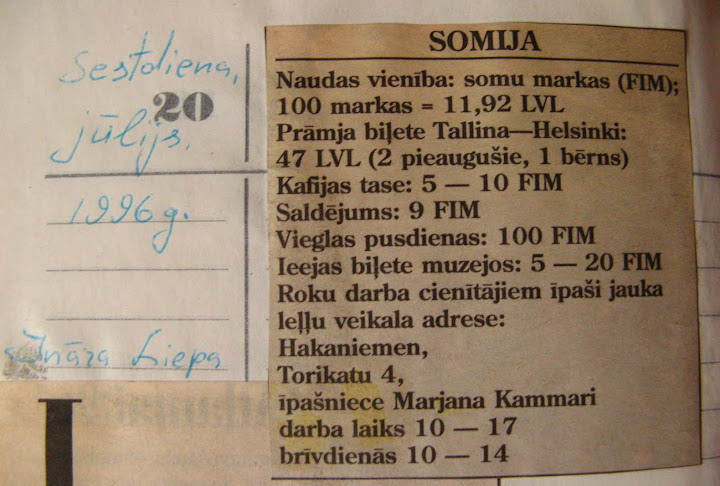 Sestdiena,
20
jūlijs,
1996 g.
Ināra Liepa
SOMIJA
Naudas vienība: somu markas (FIM);
100 markas = 11,92 LVL
Prāmja biļete Tallina—Helsinki:
47 LVL (2 pieaugušie, 1 bērns)
Kafijas tase: 5 — 10 FIM
Saldējums: 9 FIM
Vieglas pusdienas: 100 FIM
Ieejas biļete muzejos: 5 — 20 FIM
Roku darba cienītājiem īpaši jauka
leļļu veikala adrese:
Hakaniemen,
Torikatu 4,
īpašniece Marjana Kammari
darba laiks 10 — 17
brīvdienās 10 — 14